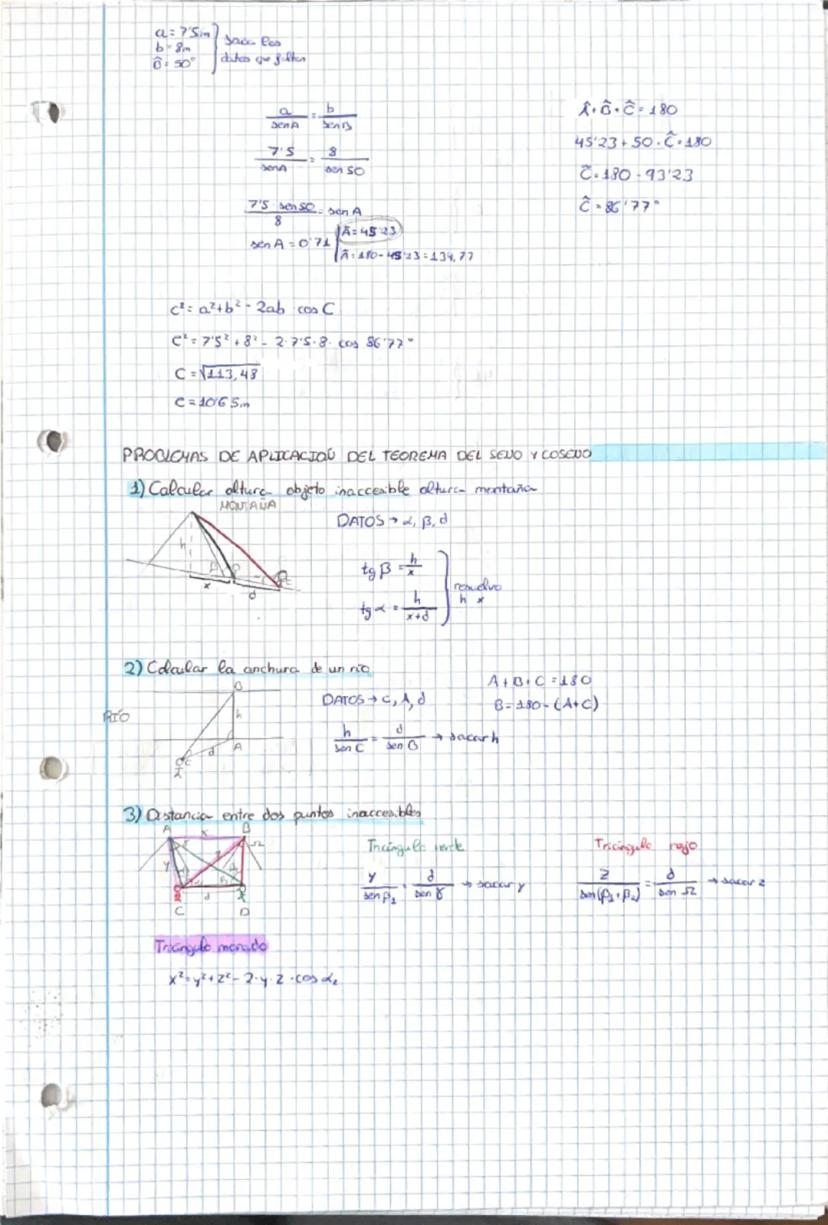 a = 7'5m
b = 8m
B̂ = 50°
Saca los
datos que faltan
a/senA = b/senB
7'5/senA = 8/sen50
7'5 · sen50/8 = senA
sen A = 0'71
Â = 45'23
Â = 180 - 45'23 = 134,77
Â + B̂ + Ĉ = 180
45'23 + 50 + Ĉ = 180
Ĉ = 180 - 93'23
Ĉ = 86'77°
c² = a² + b² - 2ab cos C
C² = 7'5² + 8² - 2·7'5·8· cos 86'77°
C = √113,48
C = 10'65m
PROBLEMAS DE APLICACIÓN DEL TEOREMA DEL SENO Y COSENO
1) Calcular altura objeto inaccesible altura montaña
MONTAÑA
h
β
x
d
DATOS → α, β, d
tg β = h/x
tg α = h/x+d
resuelvo
h x
2) Calcular la anchura de un río
RÍO
B
h
A
d
C
DATOS → C, A, d
h/sen C = d/sen B → sacar h
A + B + C = 180
B = 180 - (A+C)
3) Distancia entre dos puntos inaccesibles
A x B
y
d
C D
Triángulo verde
y/sen β₁ = d/sen γ → sacar y
Triángulo rojo
z/sen(β₁+β₂) = d/sen Ω → sacar z
Triángulo morado
x² = y² + z² - 2·y·z·cos α₂